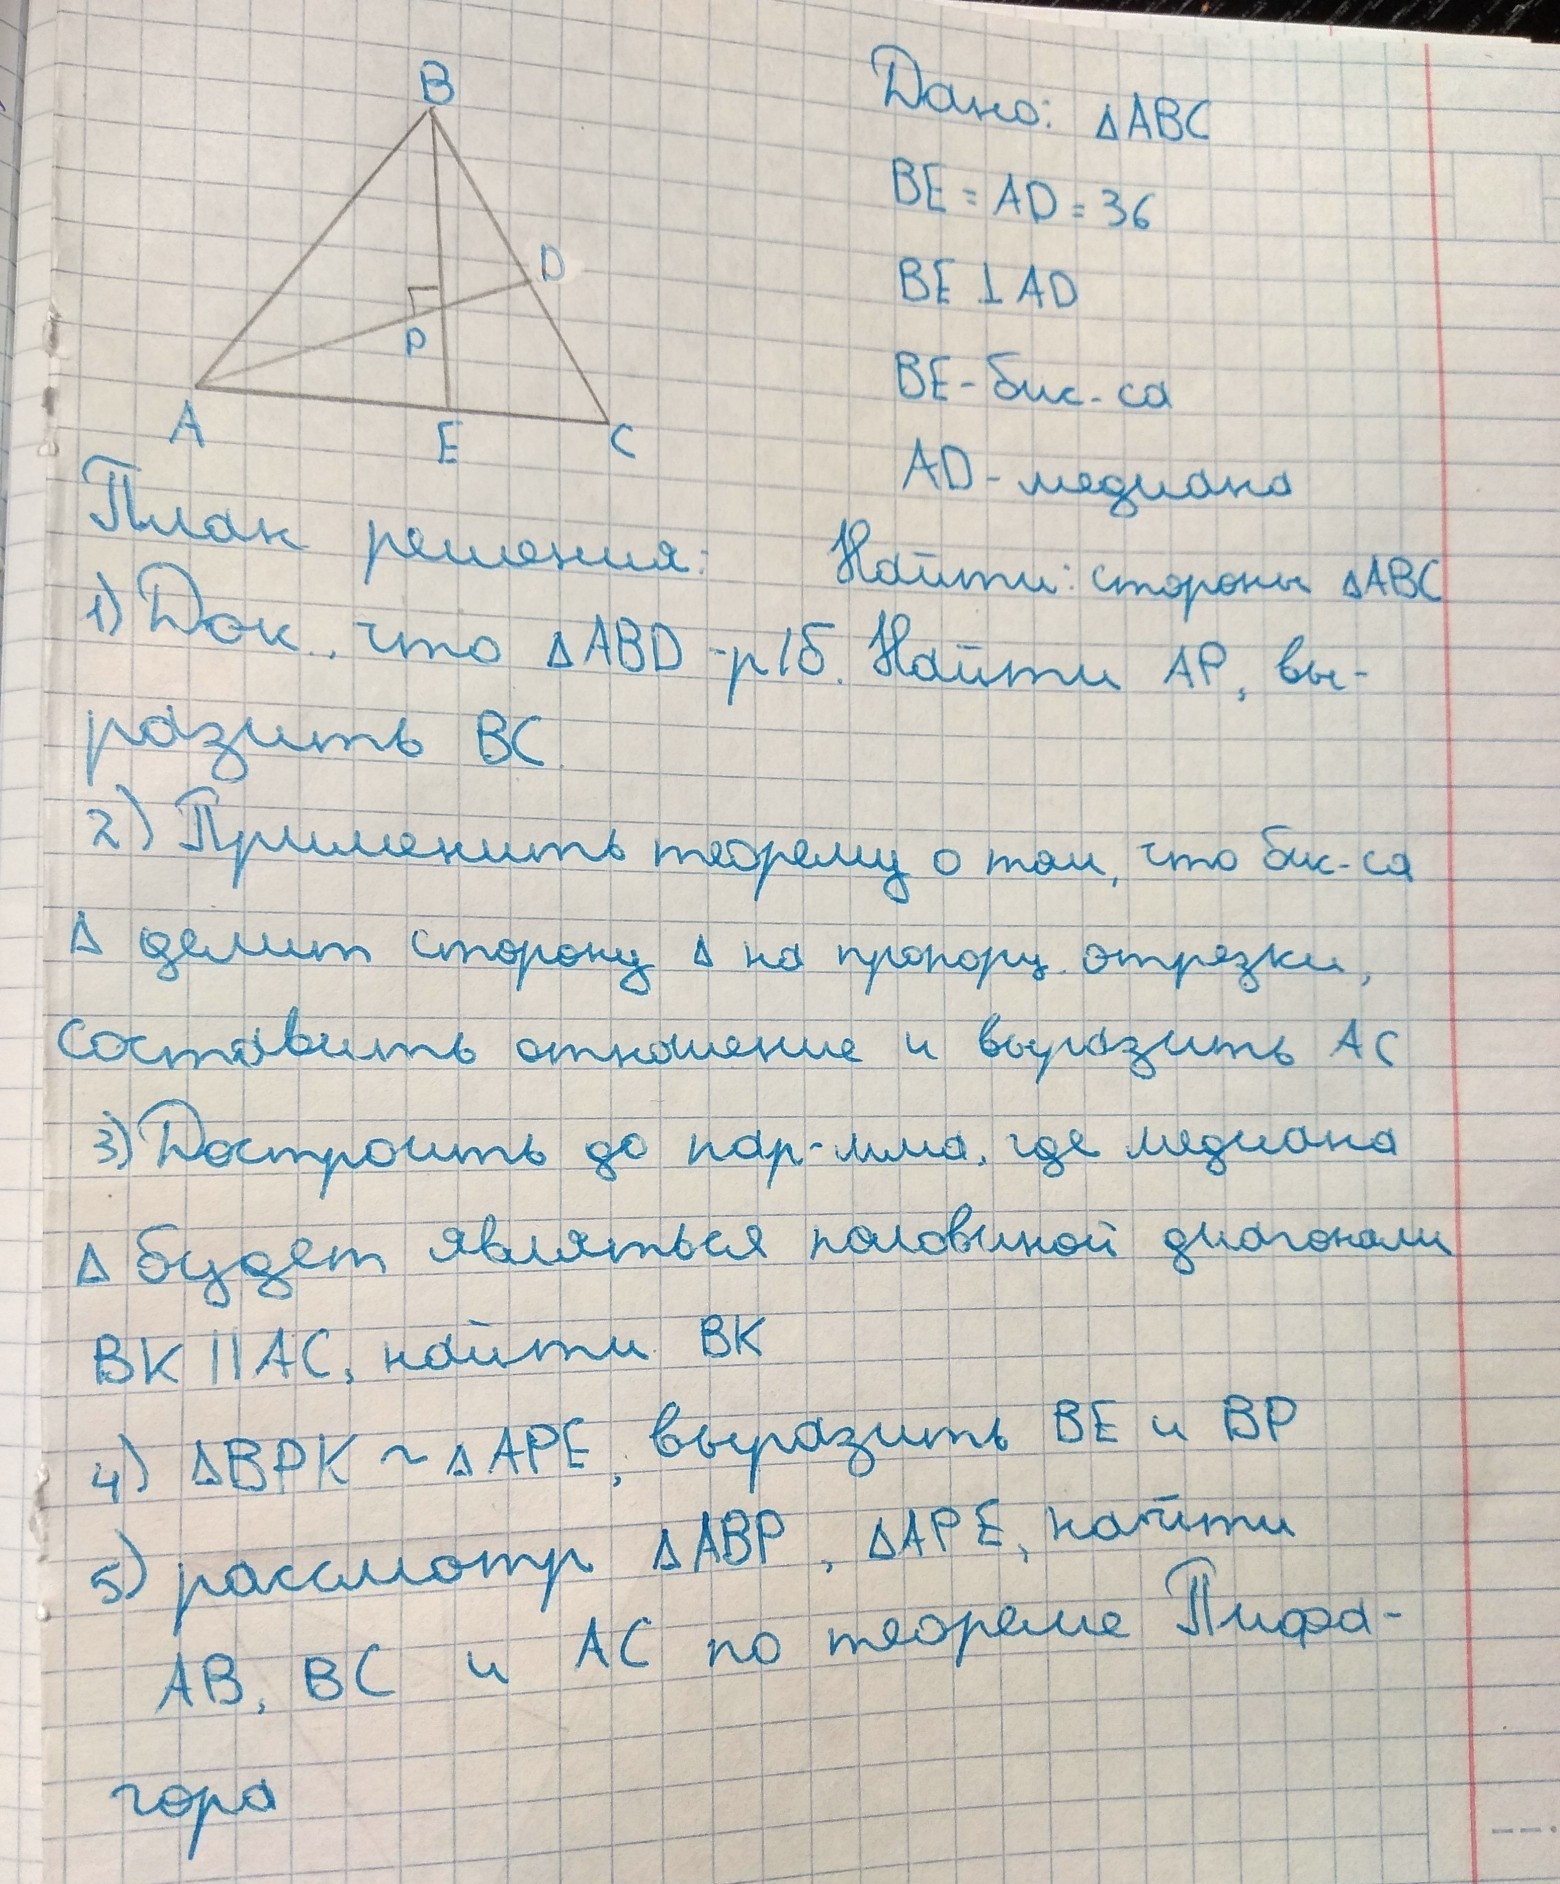 B
D
P
A
E
C
Дано: ΔABC
BE = AD = 36
BE ⊥ AD
BE - бис-са
AD - медиана
План решения:
Найти: стороны ΔABC
1) Док., что ΔABD - р/б. Найти AP, вы-
разить BC
2) Применить теорему о том, что бис-са
Δ делит сторону Δ на пропорц. отрезки,
составить отношение и выразить AC
3) Достроить до пар-мма, где медиана
Δ будет являться половиной диагонали
BK || AC, найти BK
4) ΔBPK ~ ΔAPE, выразить BE и BP
5) рассмотр ΔABP, ΔAPE, найти
AB, BC и AC по теореме Пифа-
гора